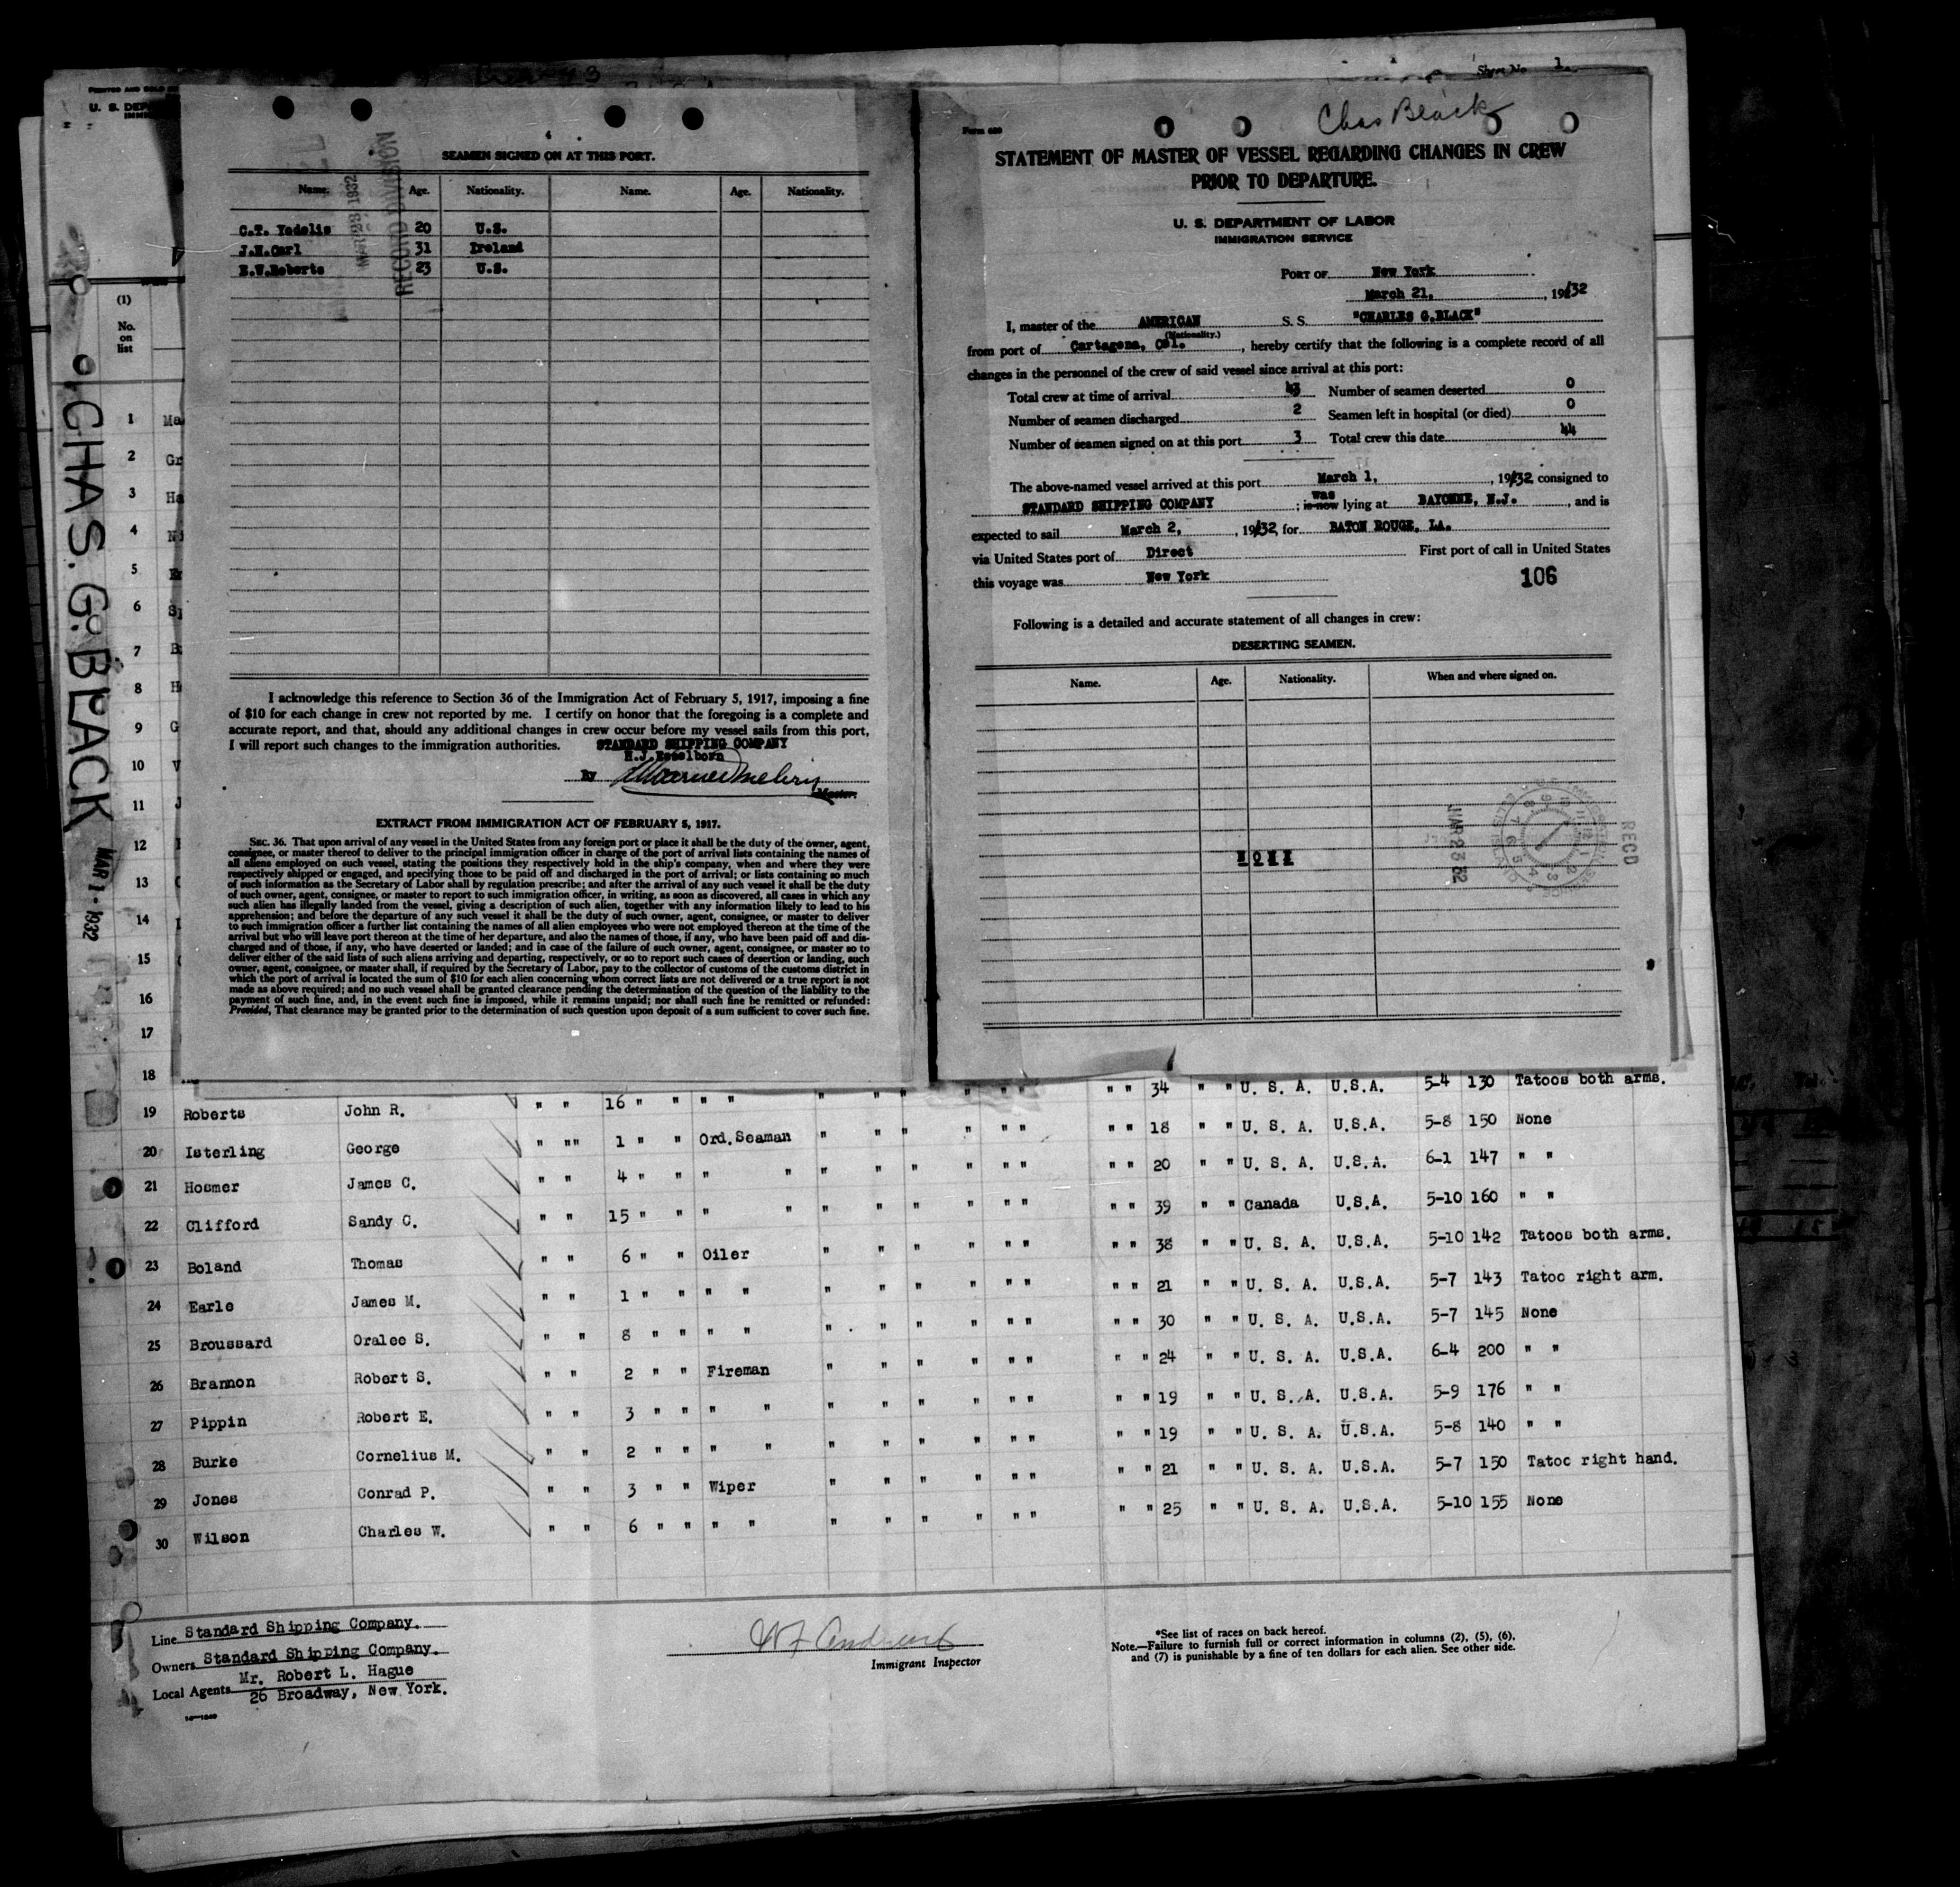 Sheet No 1.
PRINTED AND SOLD
U. S. DEP
IMMI
(1)
No.
on
list
CHAS. G. BLACK
MAR 1 - 1932
1 Ma
2 Gr
3 Ha
4 Ni
5
6
7
8 H
9 G
10 V
11 J
12
13
14
15
16
17
18
4
SEAMEN SIGNED ON AT THIS PORT.
Name. Age. Nationality. Name. Age. Nationality.
C.T. Yedelis 20 U.S.
J.H.Carl 31 Ireland
E.W.Roberts 23 U.S.
MAR 23 1932
RECORD DIVISION
I acknowledge this reference to Section 36 of the Immigration Act of February 5, 1917, imposing a fine
of $10 for each change in crew not reported by me. I certify on honor that the foregoing is a complete and
accurate report, and that, should any additional changes in crew occur before my vessel sails from this port,
I will report such changes to the immigration authorities. STANDARD SHIPPING COMPANY
By
Master.
EXTRACT FROM IMMIGRATION ACT OF FEBRUARY 5, 1917.
SEC. 36. That upon arrival of any vessel in the United States from any foreign port or place it shall be the duty of the owner, agent,
consignee, or master thereof to deliver to the principal immigration officer in charge of the port of arrival lists containing the names of
all aliens employed on such vessel, stating the positions they respectively hold in the ship's company, when and where they were
respectively shipped or engaged, and specifying those to be paid off and discharged in the port of arrival; or lists containing so much
of such information as the Secretary of Labor shall by regulation prescribe; and after the arrival of any such vessel it shall be the duty
of such owner, agent, consignee, or master to report to such immigration officer, in writing, as soon as discovered, all cases in which any
such alien has illegally landed from the vessel, giving a description of such alien, together with any information likely to lead to his
apprehension; and before the departure of any such vessel it shall be the duty of such owner, agent, consignee, or master to deliver
to such immigration officer a further list containing the names of all alien employees who were not employed thereon at the time of the
arrival but who will leave port thereon at the time of her departure, and also the names of those, if any, who have been paid off and dis-
charged and of those, if any, who have deserted or landed; and in case of the failure of such owner, agent, consignee, or master so to
deliver either of the said lists of such aliens arriving and departing, respectively, or so to report such cases of desertion or landing, such
owner, agent, consignee, or master shall, if required by the Secretary of Labor, pay to the collector of customs of the customs district in
which the port of arrival is located the sum of $10 for each alien concerning whom correct lists are not delivered or a true report is not
made as above required; and no such vessel shall be granted clearance pending the determination of the question of the liability to the
payment of such fine, and, in the event such fine is imposed, while it remains unpaid; nor shall such fine be remitted or refunded:
Provided, That clearance may be granted prior to the determination of such question upon deposit of a sum sufficient to cover such fine.
Form 689
Chas Black
STATEMENT OF MASTER OF VESSEL REGARDING CHANGES IN CREW
PRIOR TO DEPARTURE.
U. S. DEPARTMENT OF LABOR
IMMIGRATION SERVICE
PORT OF New York
March 21, , 1932
I, master of the AMERICAN S. S. "CHARLES G.BLACK"
(Nationality.)
from port of Cartagena, Col. , hereby certify that the following is a complete record of all
changes in the personnel of the crew of said vessel since arrival at this port:
Total crew at time of arrival 43 Number of seamen deserted 0
Number of seamen discharged 2 Seamen left in hospital (or died) 0
Number of seamen signed on at this port 3 Total crew this date 44
The above-named vessel arrived at this port March 1, , 1932, consigned to
STANDARD SHIPPING COMPANY ; was is now lying at BAYONNE, N.J. , and is
expected to sail March 2, , 1932, for BATON ROUGE, LA.
via United States port of Direct First port of call in United States
this voyage was New York
106
Following is a detailed and accurate statement of all changes in crew:
DESERTING SEAMEN.
Name. Age. Nationality. When and where signed on.
RECD
MAR 23 32
34 " " U. S. A. U.S.A. 5-4 130 Tatoos both arms.
19 Roberts John R. " " 16 " " " " " " " " " " " " 18 " " U. S. A. U.S.A. 5-8 150 None
20 Isterling George " " " 1 " " Ord.Seaman " " " " " " " " 20 " " U. S. A. U.S.A. 6-1 147 " "
21 Hosmer James C. " " 4 " " " " " " " " " " " " 39 " " Canada U.S.A. 5-10 160 " "
22 Clifford Sandy C. " " 15 " " " " " " " " " " " " 38 " " U. S. A. U.S.A. 5-10 142 Tatoos both arms.
23 Boland Thomas " " 6 " " Oiler " " " " " " " " 21 " " U. S. A. U.S.A. 5-7 143 Tatoo right arm.
24 Earle James M. " " 1 " " " " " " " " " " " " 30 " " U. S. A. U.S.A. 5-7 145 None
25 Broussard Oralee S. " " 8 " " " " " " " " " " " " 24 " " U. S. A. U.S.A. 6-4 200 " "
26 Brannon Robert S. " " 2 " " Fireman " " " " " " " " 19 " " U. S. A. U.S.A. 5-9 176 " "
27 Pippin Robert E. " " 3 " " " " " " " " " " " " 19 " " U. S. A. U.S.A. 5-8 140 " "
28 Burke Cornelius M. " " 2 " " " " " " " " " " " " 21 " " U. S. A. U.S.A. 5-7 150 Tatoo right hand.
29 Jones Conrad P. " " 3 " " Wiper " " " " " " " " 25 " " U. S. A. U.S.A. 5-10 155 None
30 Wilson Charles W. " " 6 " " " " " " " " " "
Line Standard Shipping Company.
Owners Standard Shipping Company.
Local Agents Mr. Robert L. Hague
26 Broadway, New York.
Immigrant Inspector
*See list of races on back hereof.
Note.—Failure to furnish full or correct information in columns (2), (5), (6),
and (7) is punishable by a fine of ten dollars for each alien. See other side.